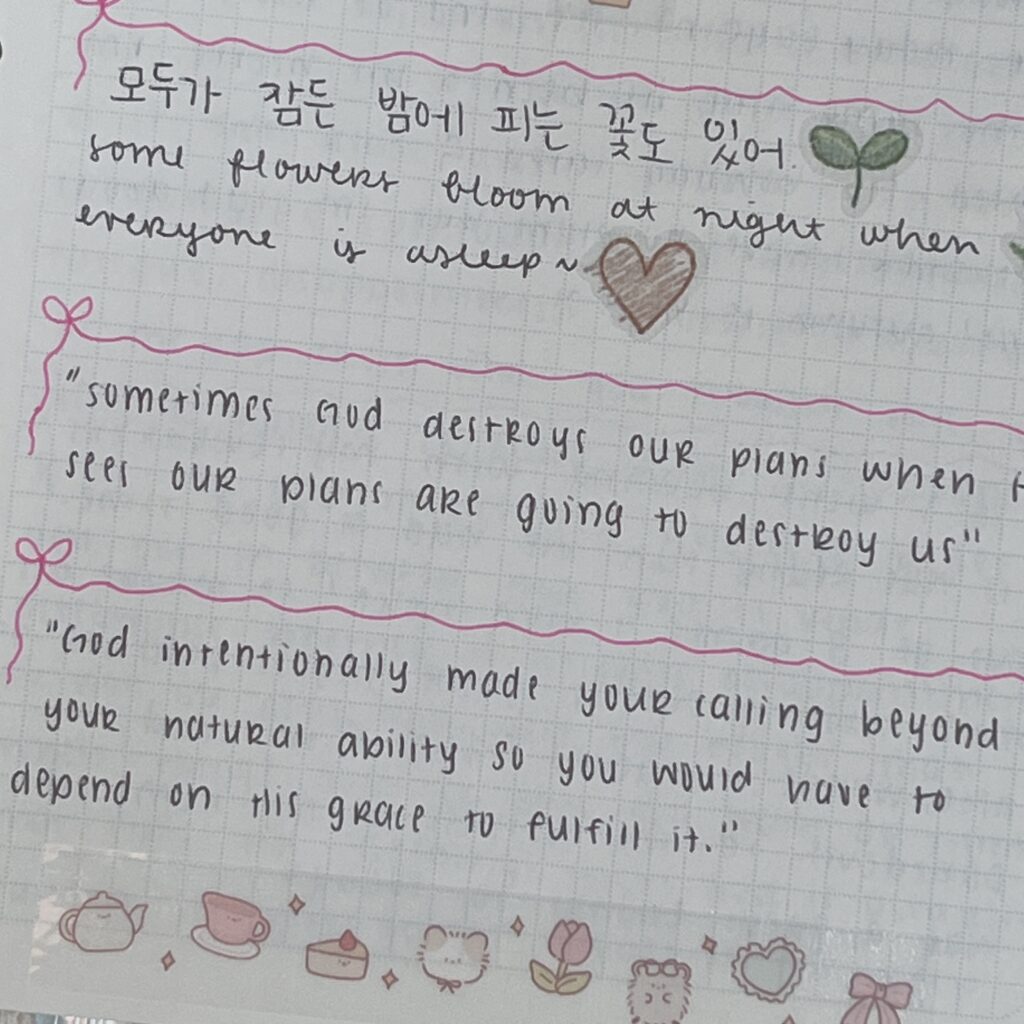 모두가 잠든 밤에 피는 꽃도 있어.
some flowers bloom at night when
everyone is asleep~
"sometimes God destroys our plans when
sees our plans are going to destroy us"
"God intentionally made your calling beyond
your natural ability so you would have to
depend on His grace to fulfill it."